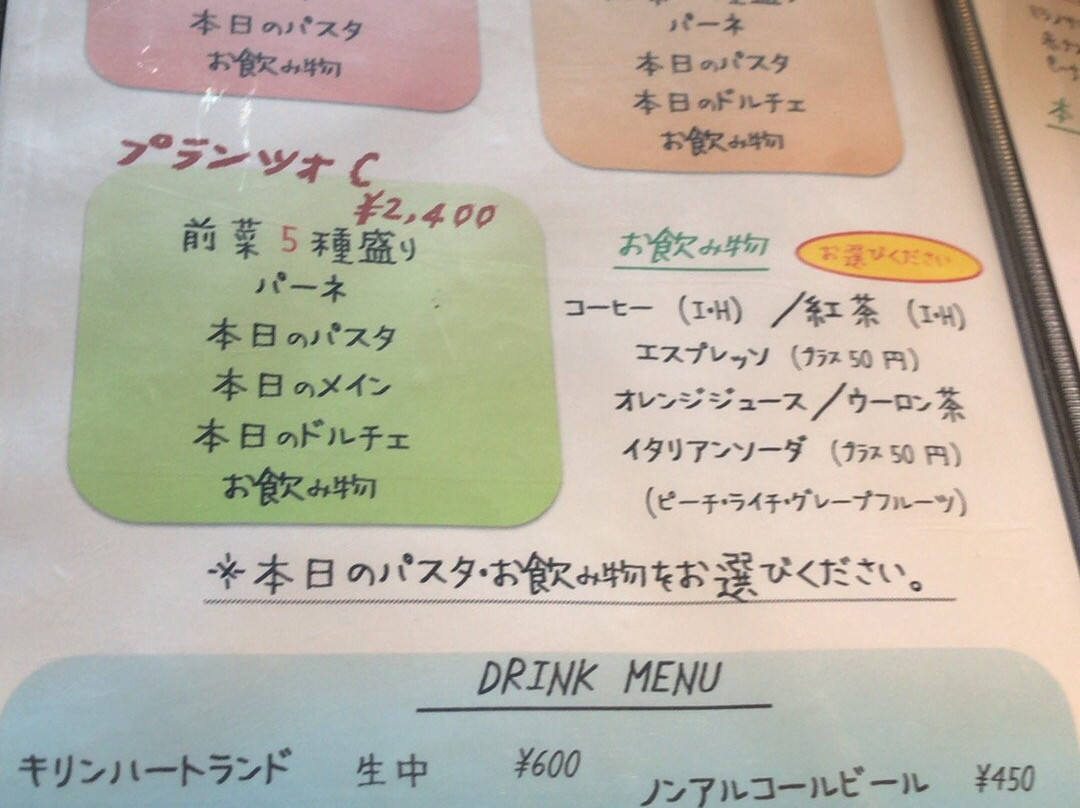 本日のパスタ
お飲み物
パーネ
本日のパスタ
本日のドルチェ
お飲み物
プランツオ C
¥2,400
前菜5種盛り
パーネ
本日のパスタ
本日のメイン
本日のドルチェ
お飲み物
お飲み物 お選びください
コーヒー (I・H) /紅茶 (I・H)
エスプレッソ (プラス50円)
オレンジジュース/ウーロン茶
イタリアンソーダ (プラス50円)
(ピーチ・ライチ・グレープフルーツ)
※本日のパスタ・お飲み物をお選びください。
DRINK MENU
キリンハートランド 生中 ¥600
ノンアルコールビール ¥450
本